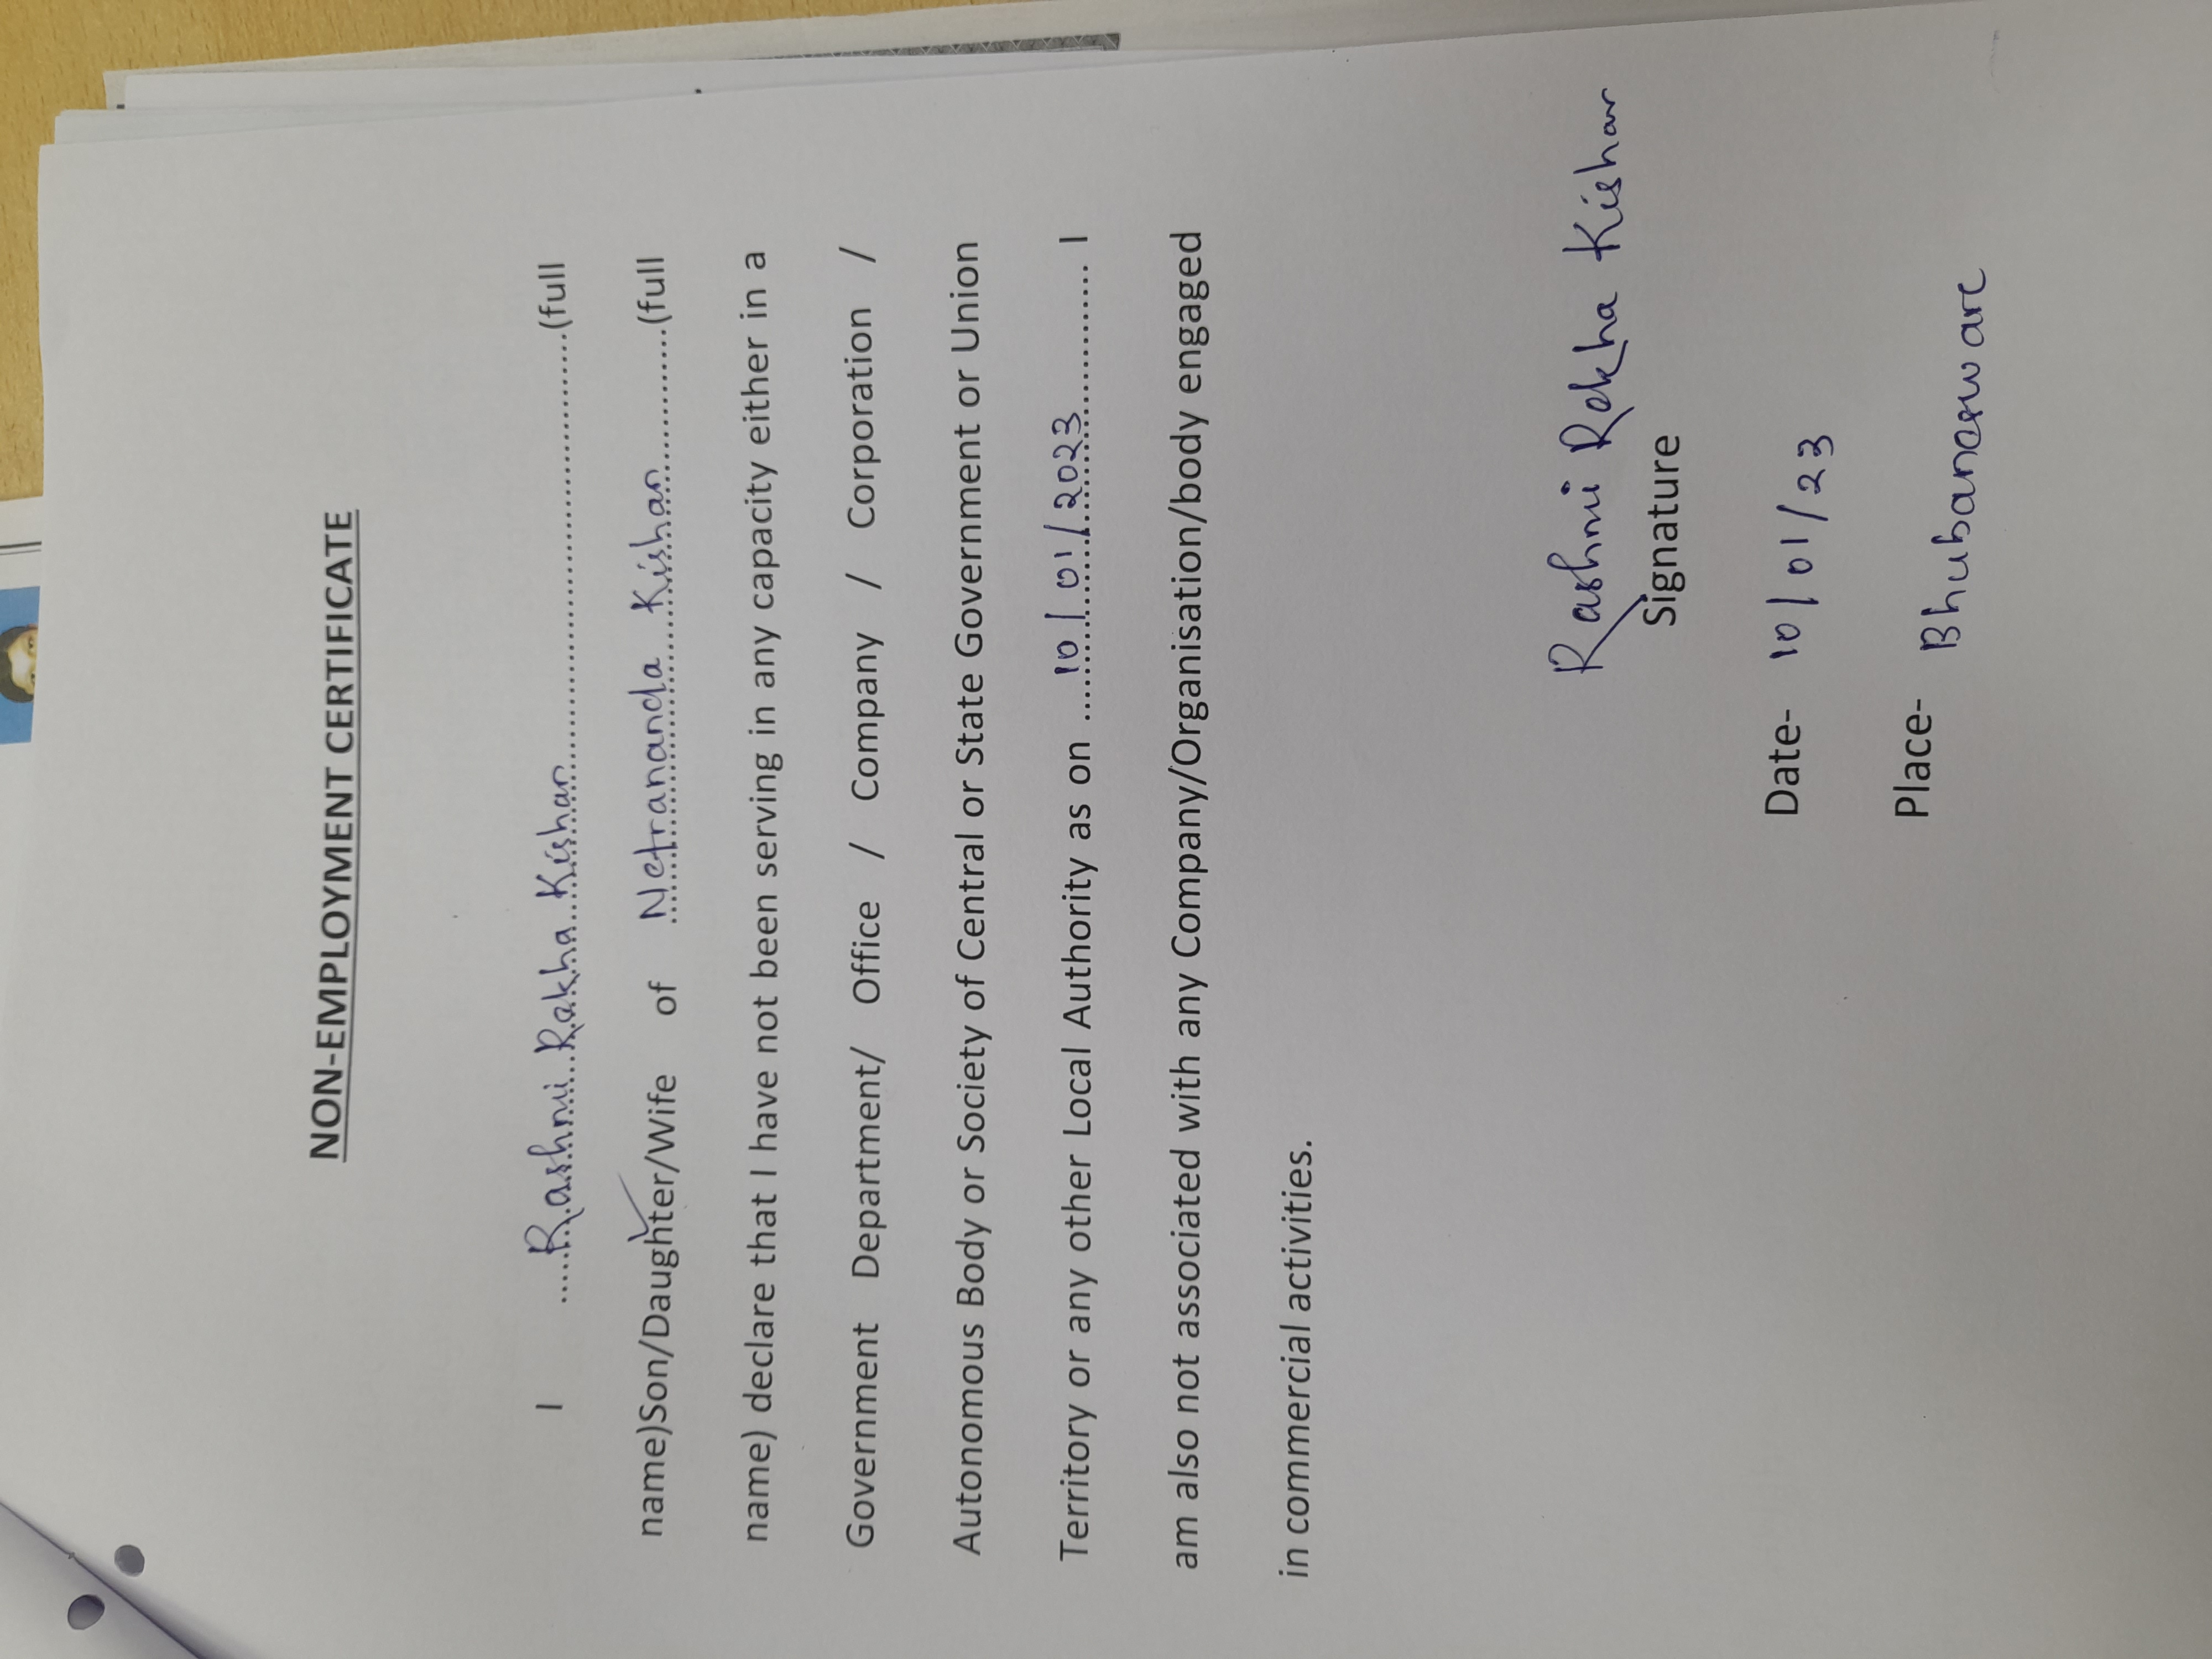 NON-EMPLOYMENT CERTIFICATE
I ....Rashmi Rekha Kishan....(full
name)Son/Daughter/Wife of Netrananda Kishan....(full
name) declare that I have not been serving in any capacity either in a
Government Department/ Office / Company / Corporation /
Autonomous Body or Society of Central or State Government or Union
Territory or any other Local Authority as on ....10/01/2023.... I
am also not associated with any Company/Organisation/body engaged
in commercial activities.
Rashmi Rekha Kishan
Signature
Date- 10/01/23
Place- Bhubaneswar